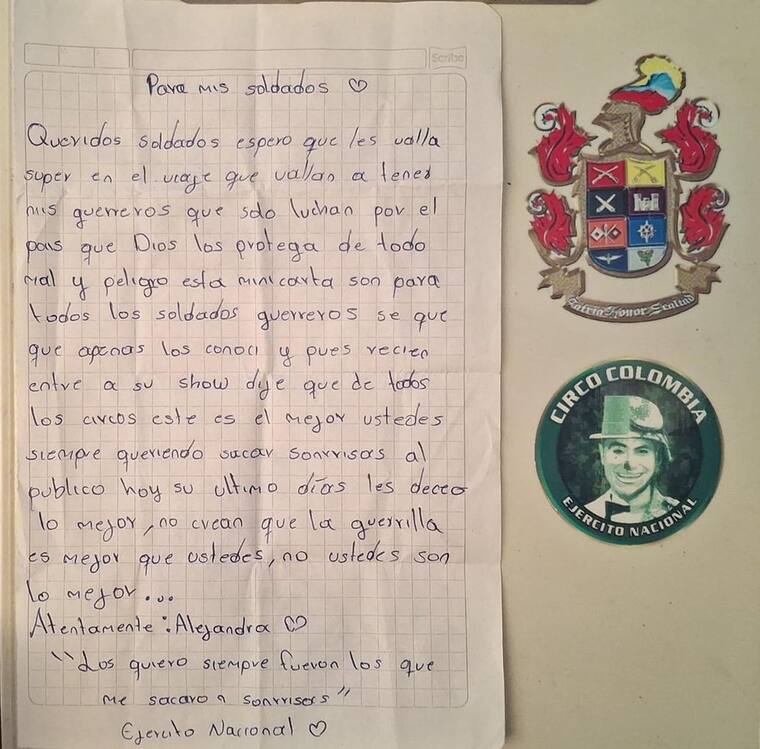 Scribe
Para mis soldados ♡
Queridos soldados espero que les valla
super en el viaje que vallan a tener
mis guerreros que solo luchan por el
pais que Dios los protega de todo
mal y peligro esta minicarta son para
todos los soldados guerreros se que
que apenas los conoci y pues recien
entre a su show dije que de todos
los circos este es el mejor ustedes
siempre queriendo sacar sonrrisas al
publico hoy su ultimo días les deceo
lo mejor, no crean que la guerrilla
es mejor que ustedes, no ustedes son
lo mejor...
Atentamente: Alejandra ♡
"Los quiero siempre fueron los que
me sacaron sonrrisas"
Ejercito Nacional ♡
Patria Honor Lealtad
CIRCO COLOMBIA
EJERCITO NACIONAL